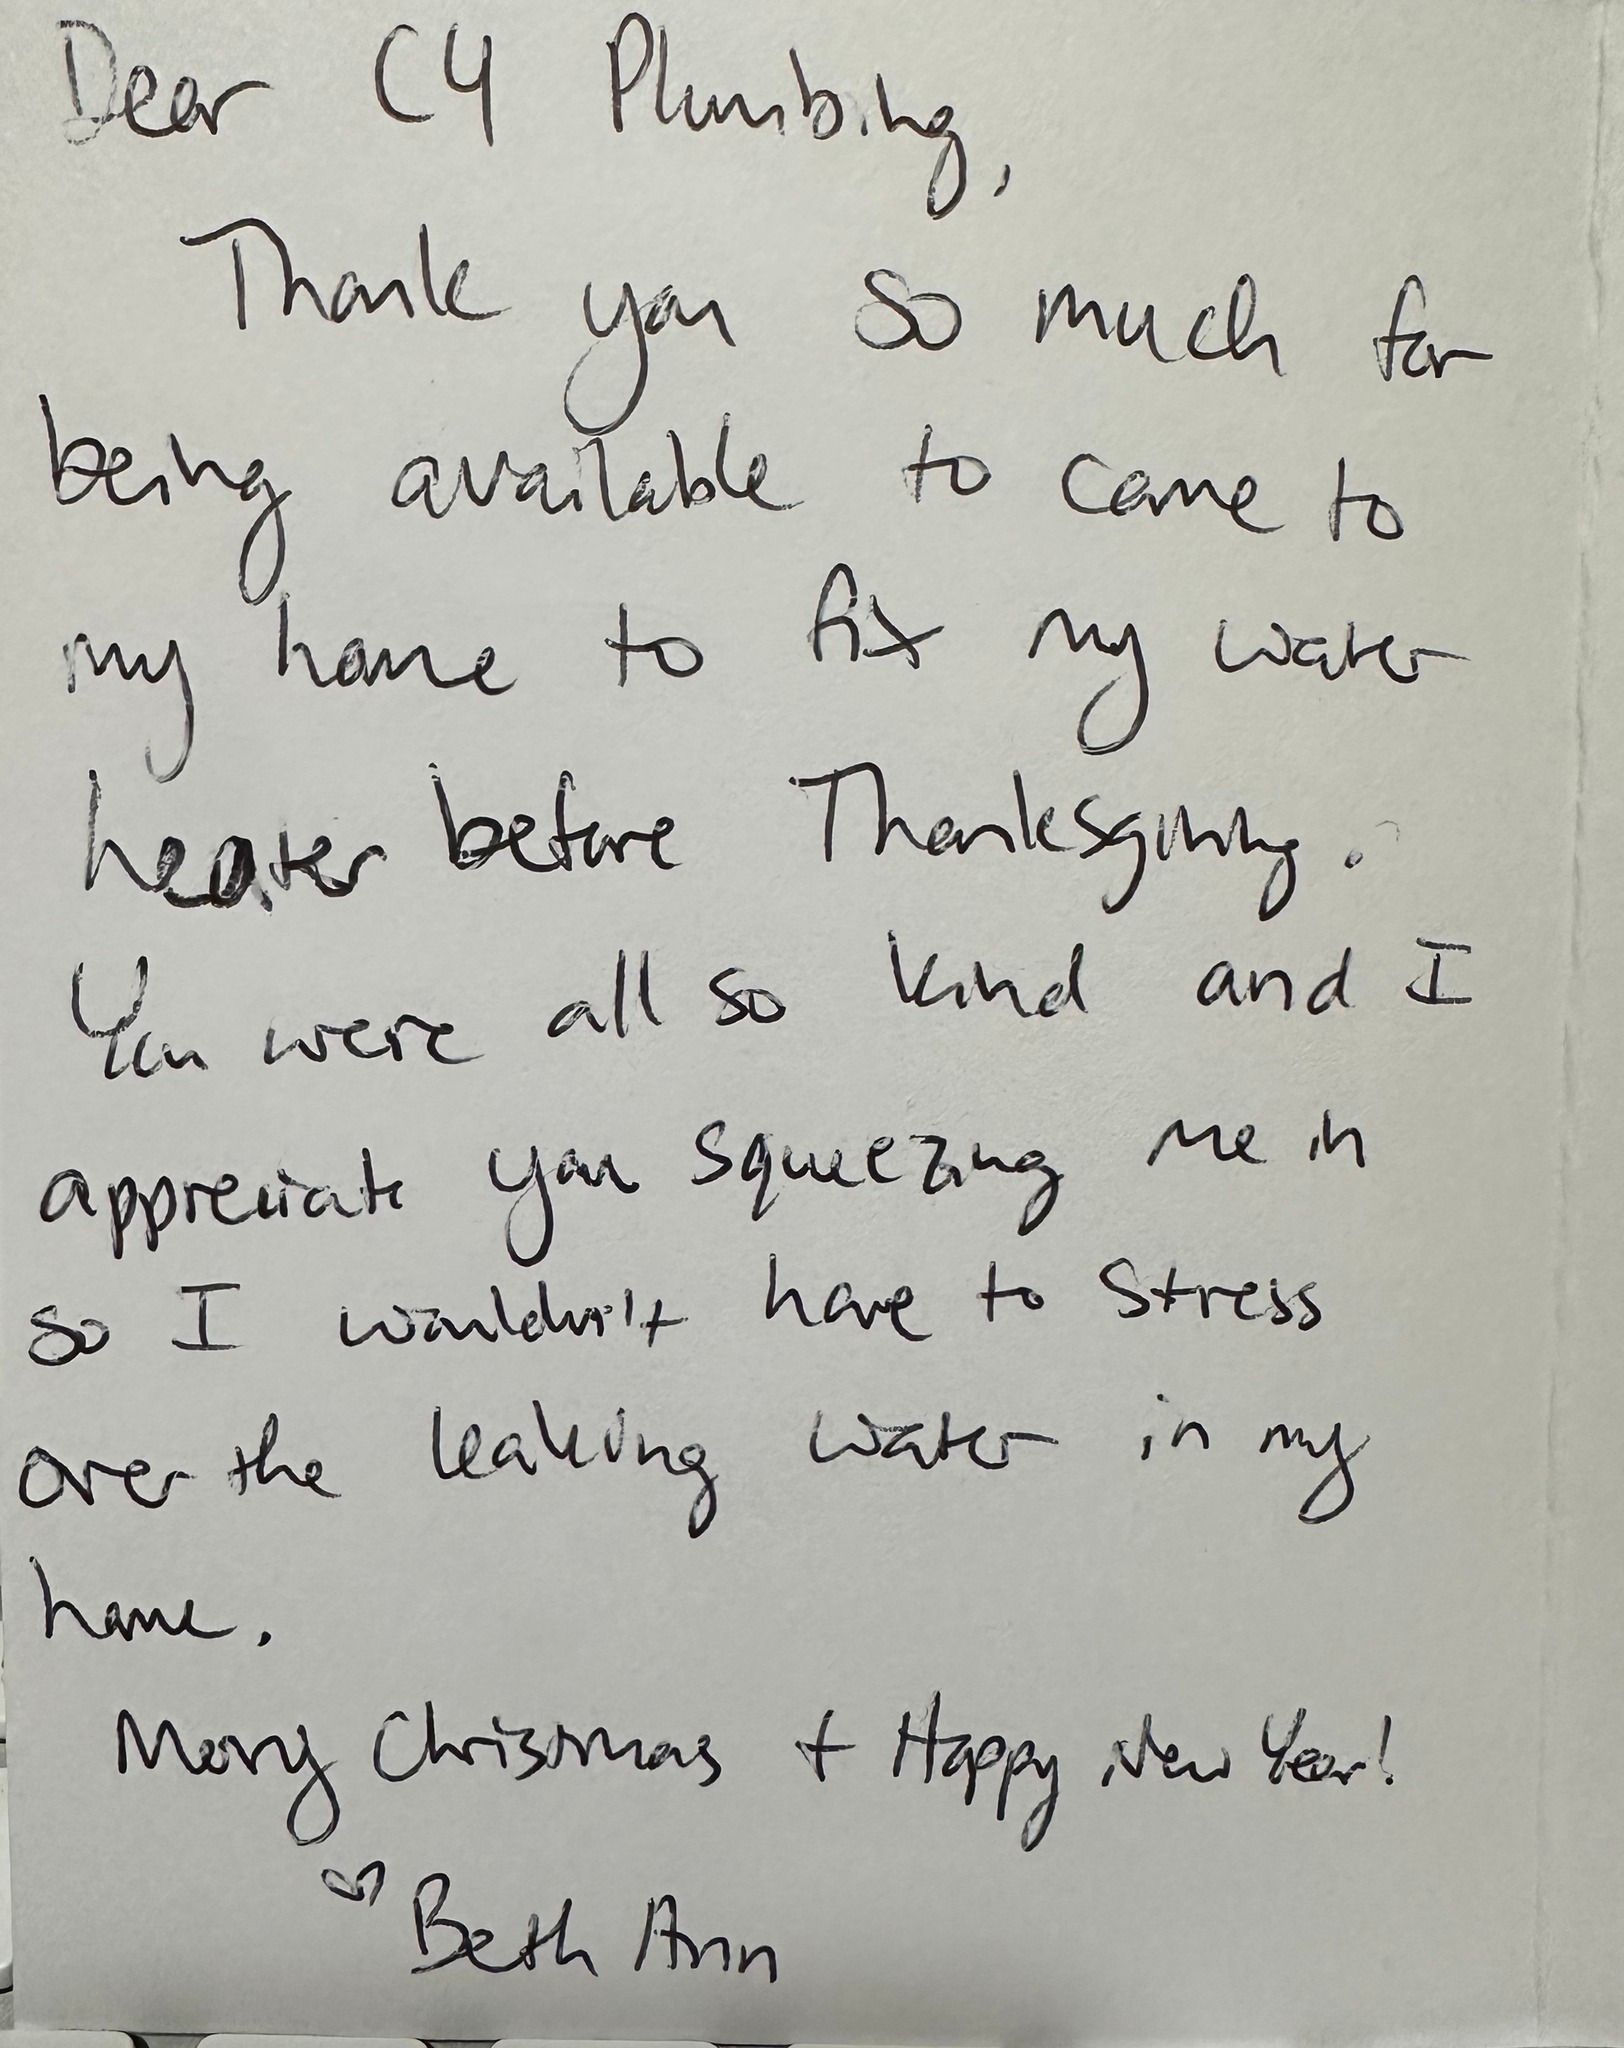 Dear C4 Plumbing,
Thank you so much for
being available to come to
my home to fix my water
heater before Thanksgiving.
You were all so kind and I
appreciate you squeezing me in
so I wouldn't have to stress
over the leaking water in my
home.
Merry Christmas + Happy New Year!
♡ Beth Ann